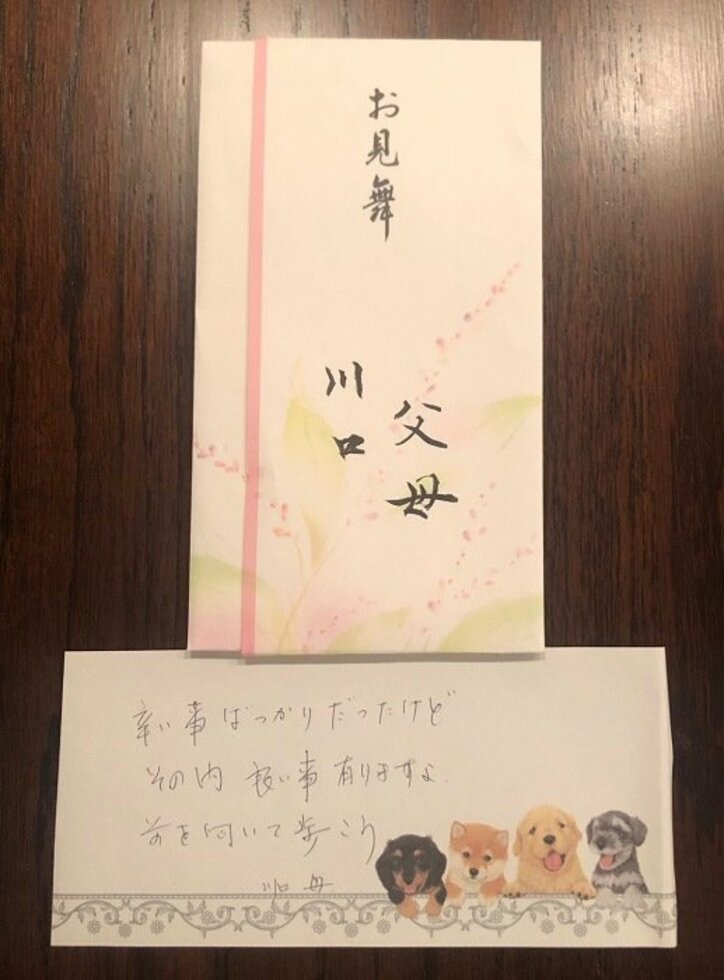 お見舞
父母
川口
辛い事ばっかりだったけど
その内 良い事 有りますよ.
前を向いて歩こう
川口 母